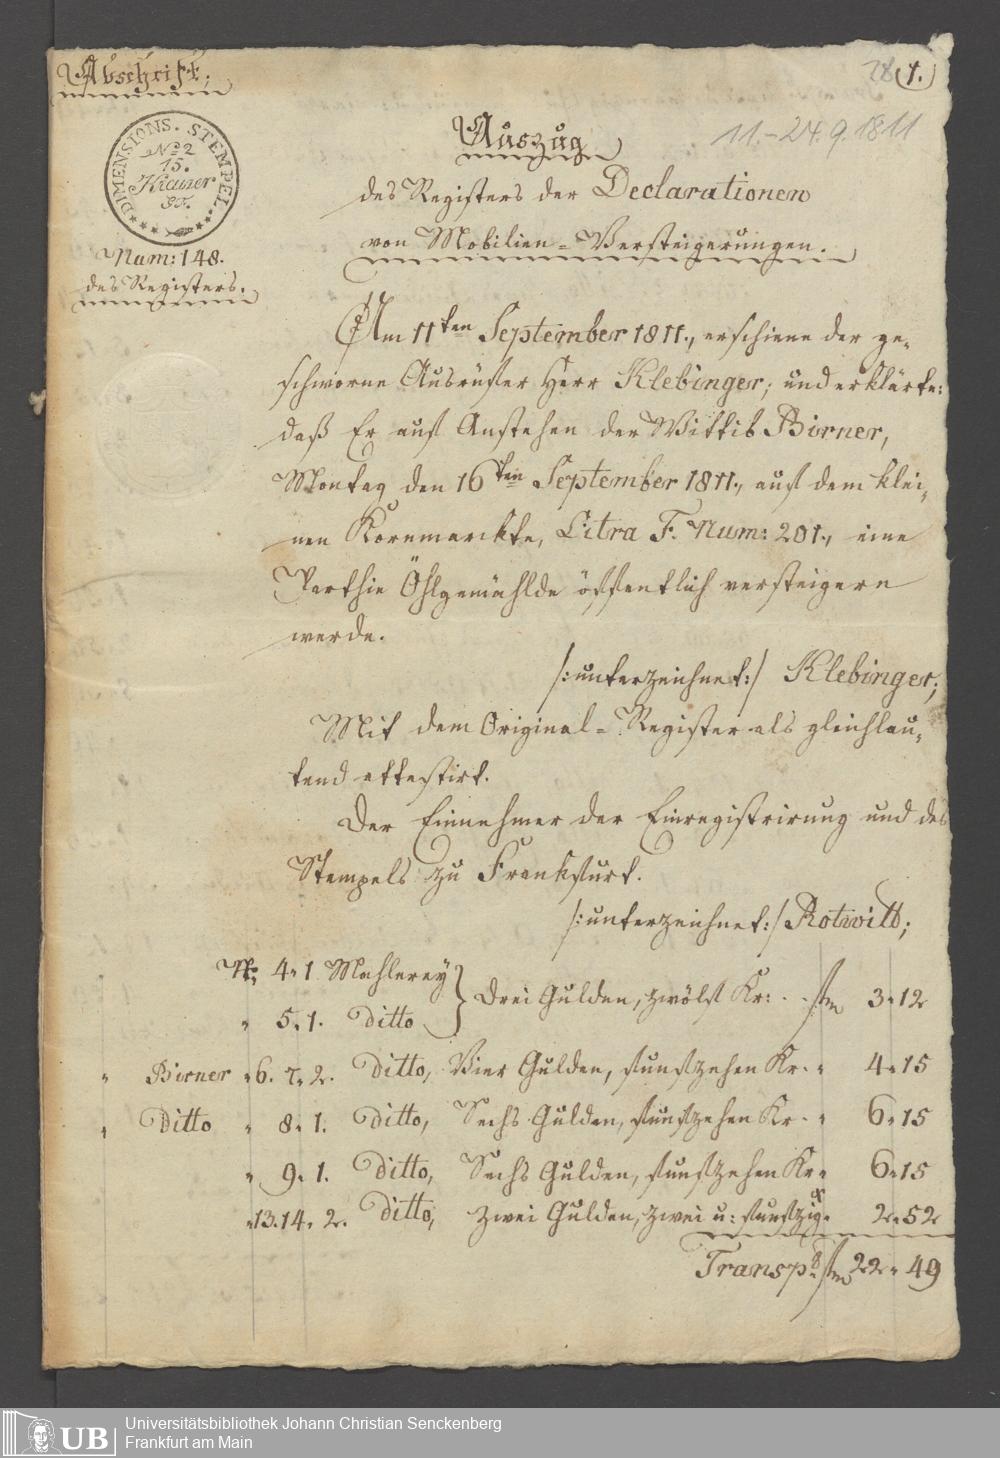 Abschrift;
28 (1.)
11.-24.9.1811
DIMENSIONS. STEMPEL.
No 2
15.
Kreuzer
Num: 148.
des Registers.
Auszug
des Registers der Declarationen
von Mobilien-Versteigerungen.
Am 11ten September 1811., erschiene der ge-
schworne Ausrüfer Herr Klebinger, und erklärte:
daß Er auf Anstehen der Wittib Birner,
Montag den 16ten September 1811., auf dem klei-
nen Kornmarckte, Litra F. Num: 201., eine
Parthie Öhlgemählde öffentlich versteigern
werde.
/:unterzeichnet:/ Klebinger;
Mit dem Original-Register als gleichlau-
tend attestirt.
Der Einnehmer der Einregistrirung und des
Stempels zu Frankfurt.
/:unterzeichnet:/ Rotwitt;
No. 4. 1. Mahlerey
" 5. 1. Ditto } Drei Gulden, zwölf Kr: . . fl 3 " 12
" Birner " 6. 7. 2. Ditto, Vier Gulden, funfzehen Kr. " 4 " 15
" Ditto " 8. 1. Ditto, Sechs Gulden, funfzehen Kr. " 6 " 15
" 9. 1. Ditto, Sechs Gulden, funfzehen Kr " 6 " 15
" 13. 14. 2. Ditto, Zwei Gulden, zwei u: funfzig " 2 " 52
Transpt. fl 22 " 49
UB
Universitätsbibliothek Johann Christian Senckenberg
Frankfurt am Main